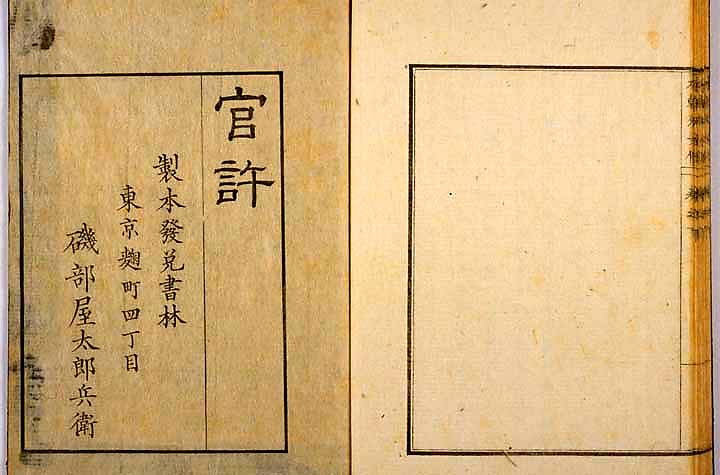 官許
製本發兌書林
東京麴町四丁目
磯部屋太郎兵衛